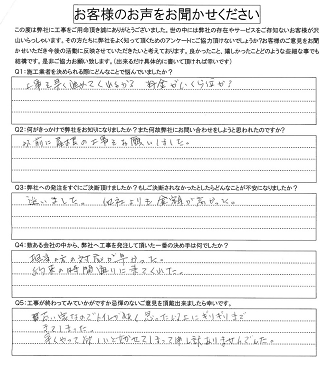 お客様のお声をお聞かせください
この度は弊社に工事をご用命頂き誠にありがとうございました。世の中には弊社の存在やサービスをご存知ないお客様が沢
山いらっしゃいます。その方たちに弊社をよく知って頂くためのアンケートにご協力頂けないでしょうか?お客様のご意見をお聞
かせいただき今後の活動に反映させていただきたいと考えております。良かったこと、嬉しかったことどのような些細な事でも
結構です。是非ご協力お願い致します。(出来るだけ具体的に書いて頂ければ幸いです)
Q1:施工業者を決められる際にどんなことで悩んでいましたか?
工事を早く進めてくれるか? 料金がいくらほどか?
Q2:何がきっかけで弊社をお知りになりましたか?また何故弊社にお問い合わせをしようと思われたのですか?
以前に 工事をお願いしました。
Q3:弊社への発注をすぐにご決断頂けましたか?もしご決断されなかったとしたらどんなことが不安になりましたか?
迷いました。 他社よりも金額が高かった。
Q4:数ある会社の中から、弊社へ工事を発注して頂いた一番の決め手は何でしたか?
担当の方の対応が早かった。
約束の時間通りに来てくれた。
Q5:工事が終わってみていかがですか忌憚のないご意見を頂戴出来ましたら幸いです。
寒い場なのでトイレが と思っている ギリギリまで
まってしまった。
早くやって欲しいと せてしまって申し訳ありませんでした。